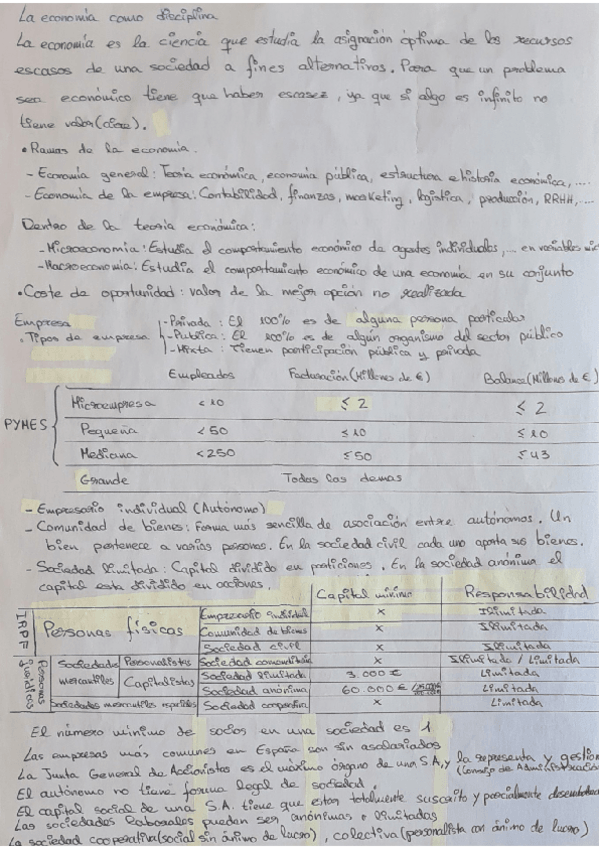 La economía como disciplina
La economía es la ciencia que estudia la asignación óptima de los recursos
escasos de una sociedad a fines alternativos. Para que un problema
sea económico tiene que haber escasez, ya que si algo es infinito no
tiene valor
• Ramas de la economía.
- Economía general: Teoría económica, economía pública, estructura e historia económica,....
- Economía de la empresa: Contabilidad, finanzas, marketing, logística, producción, RRHH,...
Dentro de la teoría económica:
- Microeconomía: Estudia el comportamiento económico de agentes individuales, ... en variables
- Macroeconomía: Estudia el comportamiento económico de una economía en su conjunto
• Coste de oportunidad: valor de la mejor opción no realizada
Empresa
• Tipos de empresa
- Privada: El 100% es de alguna persona particular
- Publica: El 100% es de algún organismo del sector público
- Mixta: Tienen participación pública y privada
Empleados Facturación (Millones de €) Balance (Millones de €)
PYMES
Microempresa < 10 ≤ 2 ≤ 2
Pequeña < 50 ≤ 10 ≤ 10
Mediana < 250 ≤ 50 ≤ 43
Grande Todas las demas
- Empresario individual (Autónomo)
- Comunidad de bienes: Forma más sencilla de asociación entre autónomos. Un
bien pertenece a varias personas. En la sociedad civil cada uno aporta sus bienes.
- Sociedad limitada: Capital dividido en particiones. En la sociedad anónima el
capital esta dividido en acciones.
Capital mínimo Responsabilidad
IRPF Personas físicas Empresario individual x Ilimitada
Comunidad de bienes x Ilimitada
Sociedad civil x Ilimitada
Personas jurídicas Sociedades mercantiles Personalistas Sociedad comanditaria x Ilimitada / Limitada
Capitalistas Sociedad limitada 3.000 € Limitada
Sociedad anónima 60.000 € Limitada
Sociedades mercantiles especiales Sociedad cooperativa x Limitada
El número mínimo de socios en una sociedad es 1
Las empresas más comunes en España son sin asalariados
La Junta General de Accionistas es el máximo órgano de una S.A, y la representa y gestion
(Consejo de Administración
El autónomo no tiene forma legal de sociedad
El capital social de una S.A. tiene que estar totalmente suscrito y parcialmente desembolsado
Las sociedades laborales pueden ser anónimas o limitadas
La sociedad cooperativa (social sin ánimo de lucro), colectiva (personalista con ánimo de lucro)